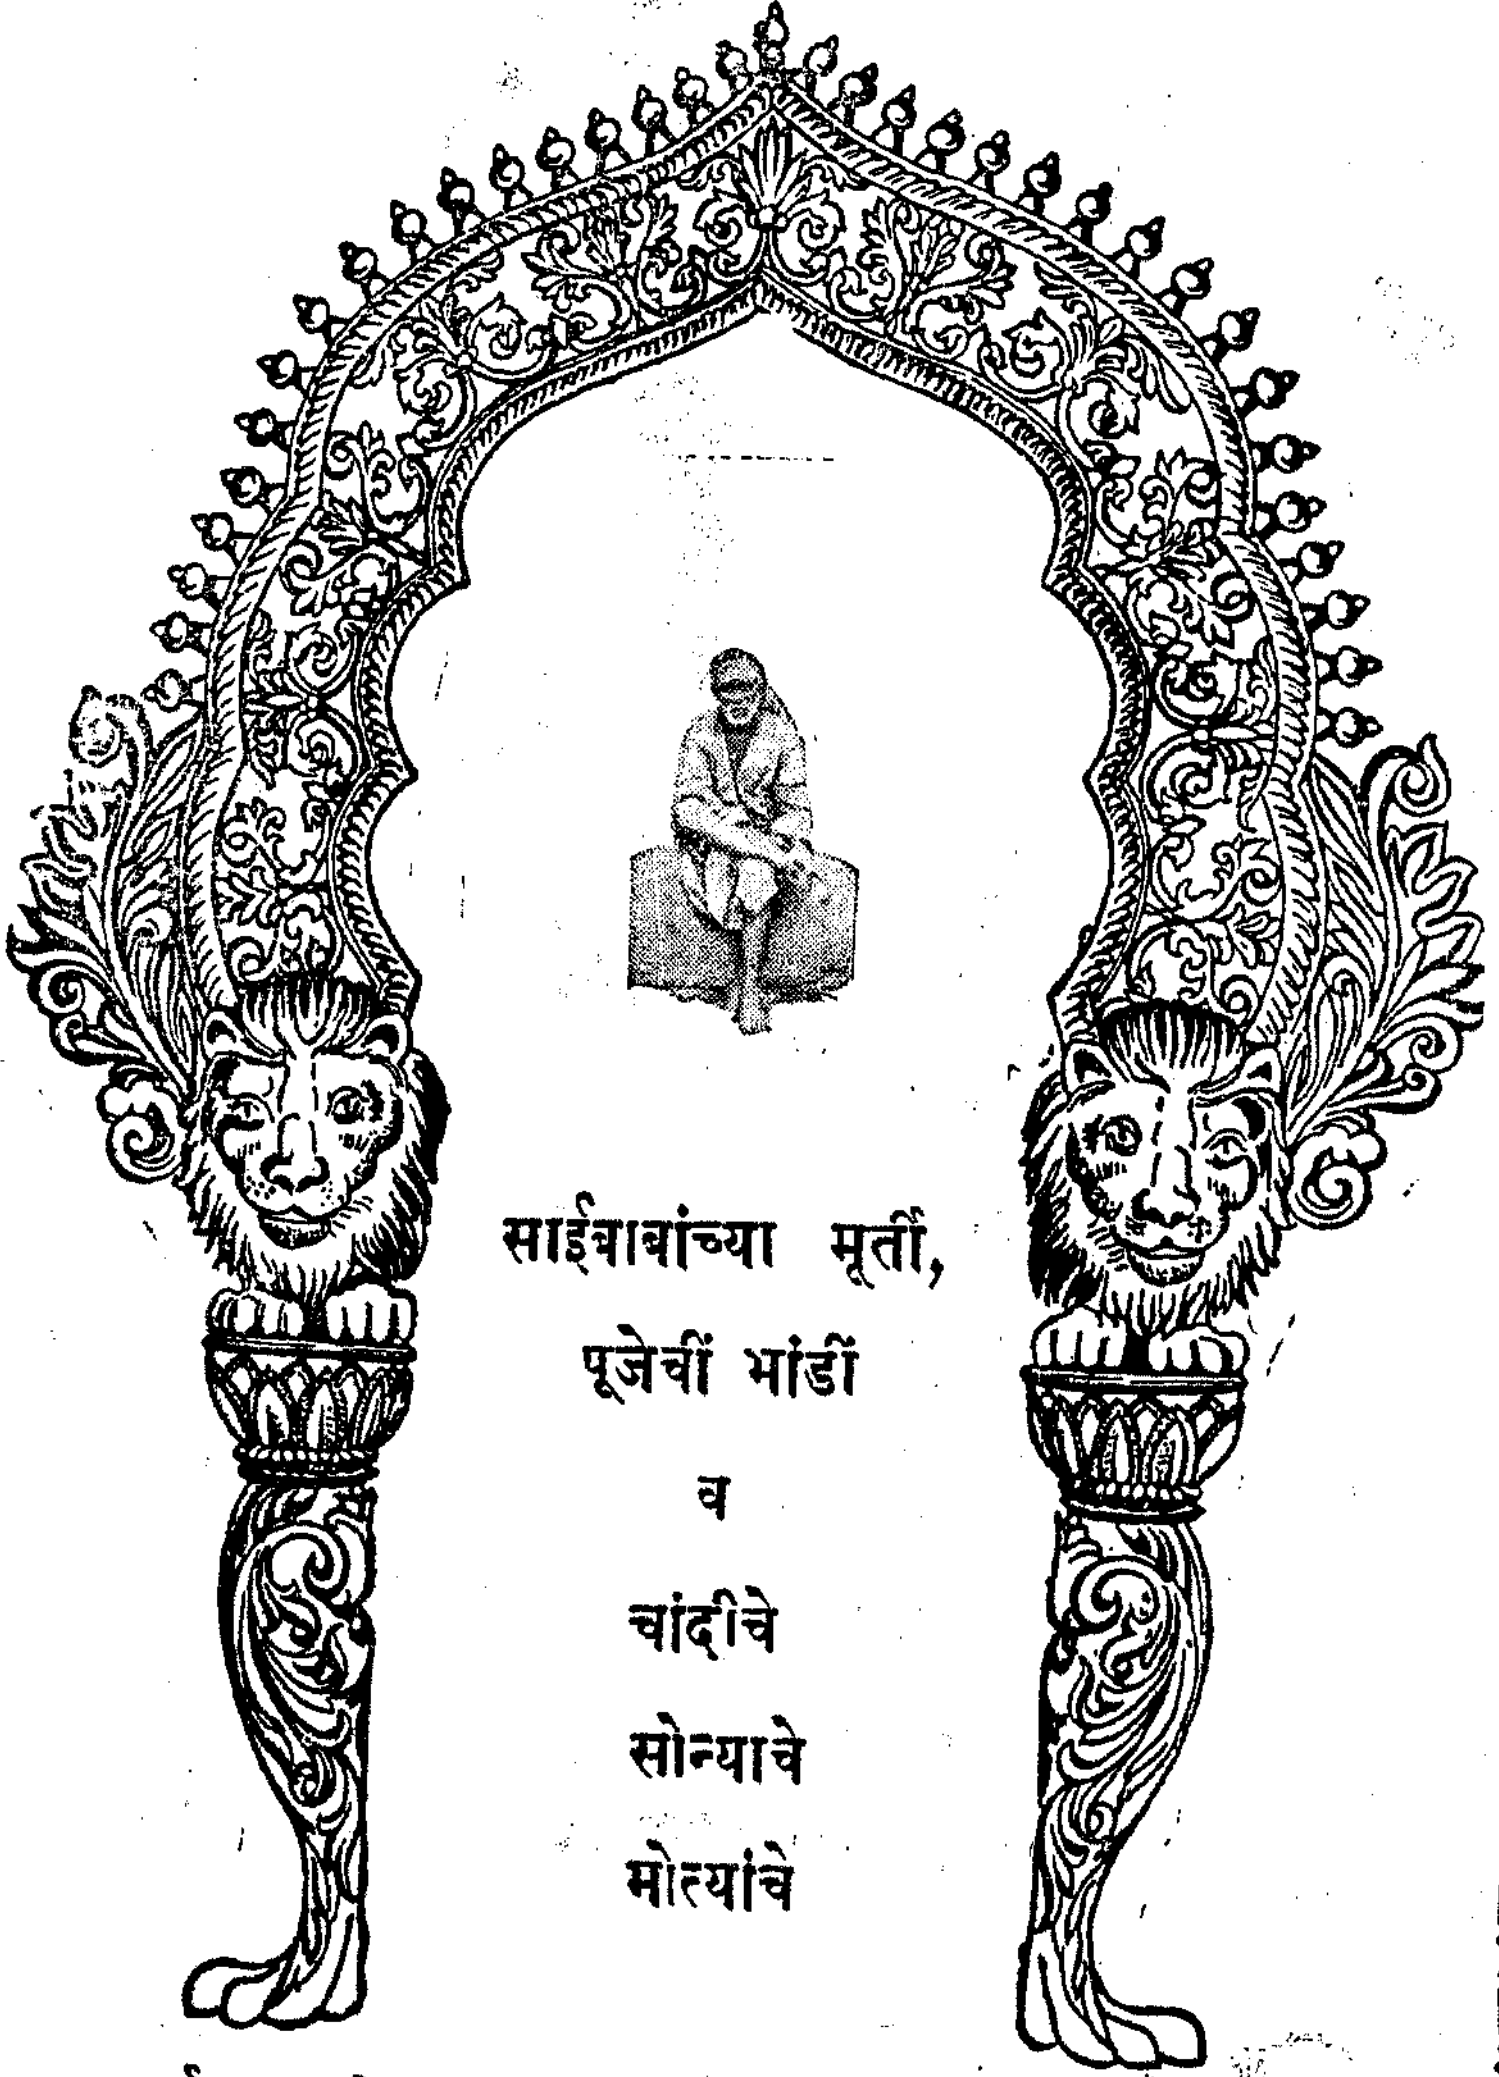 साईबाबांच्या मूर्ती,
पूजेचीं भांडीं
व
चांदीचे
सोन्याचे
मोत्यांचे